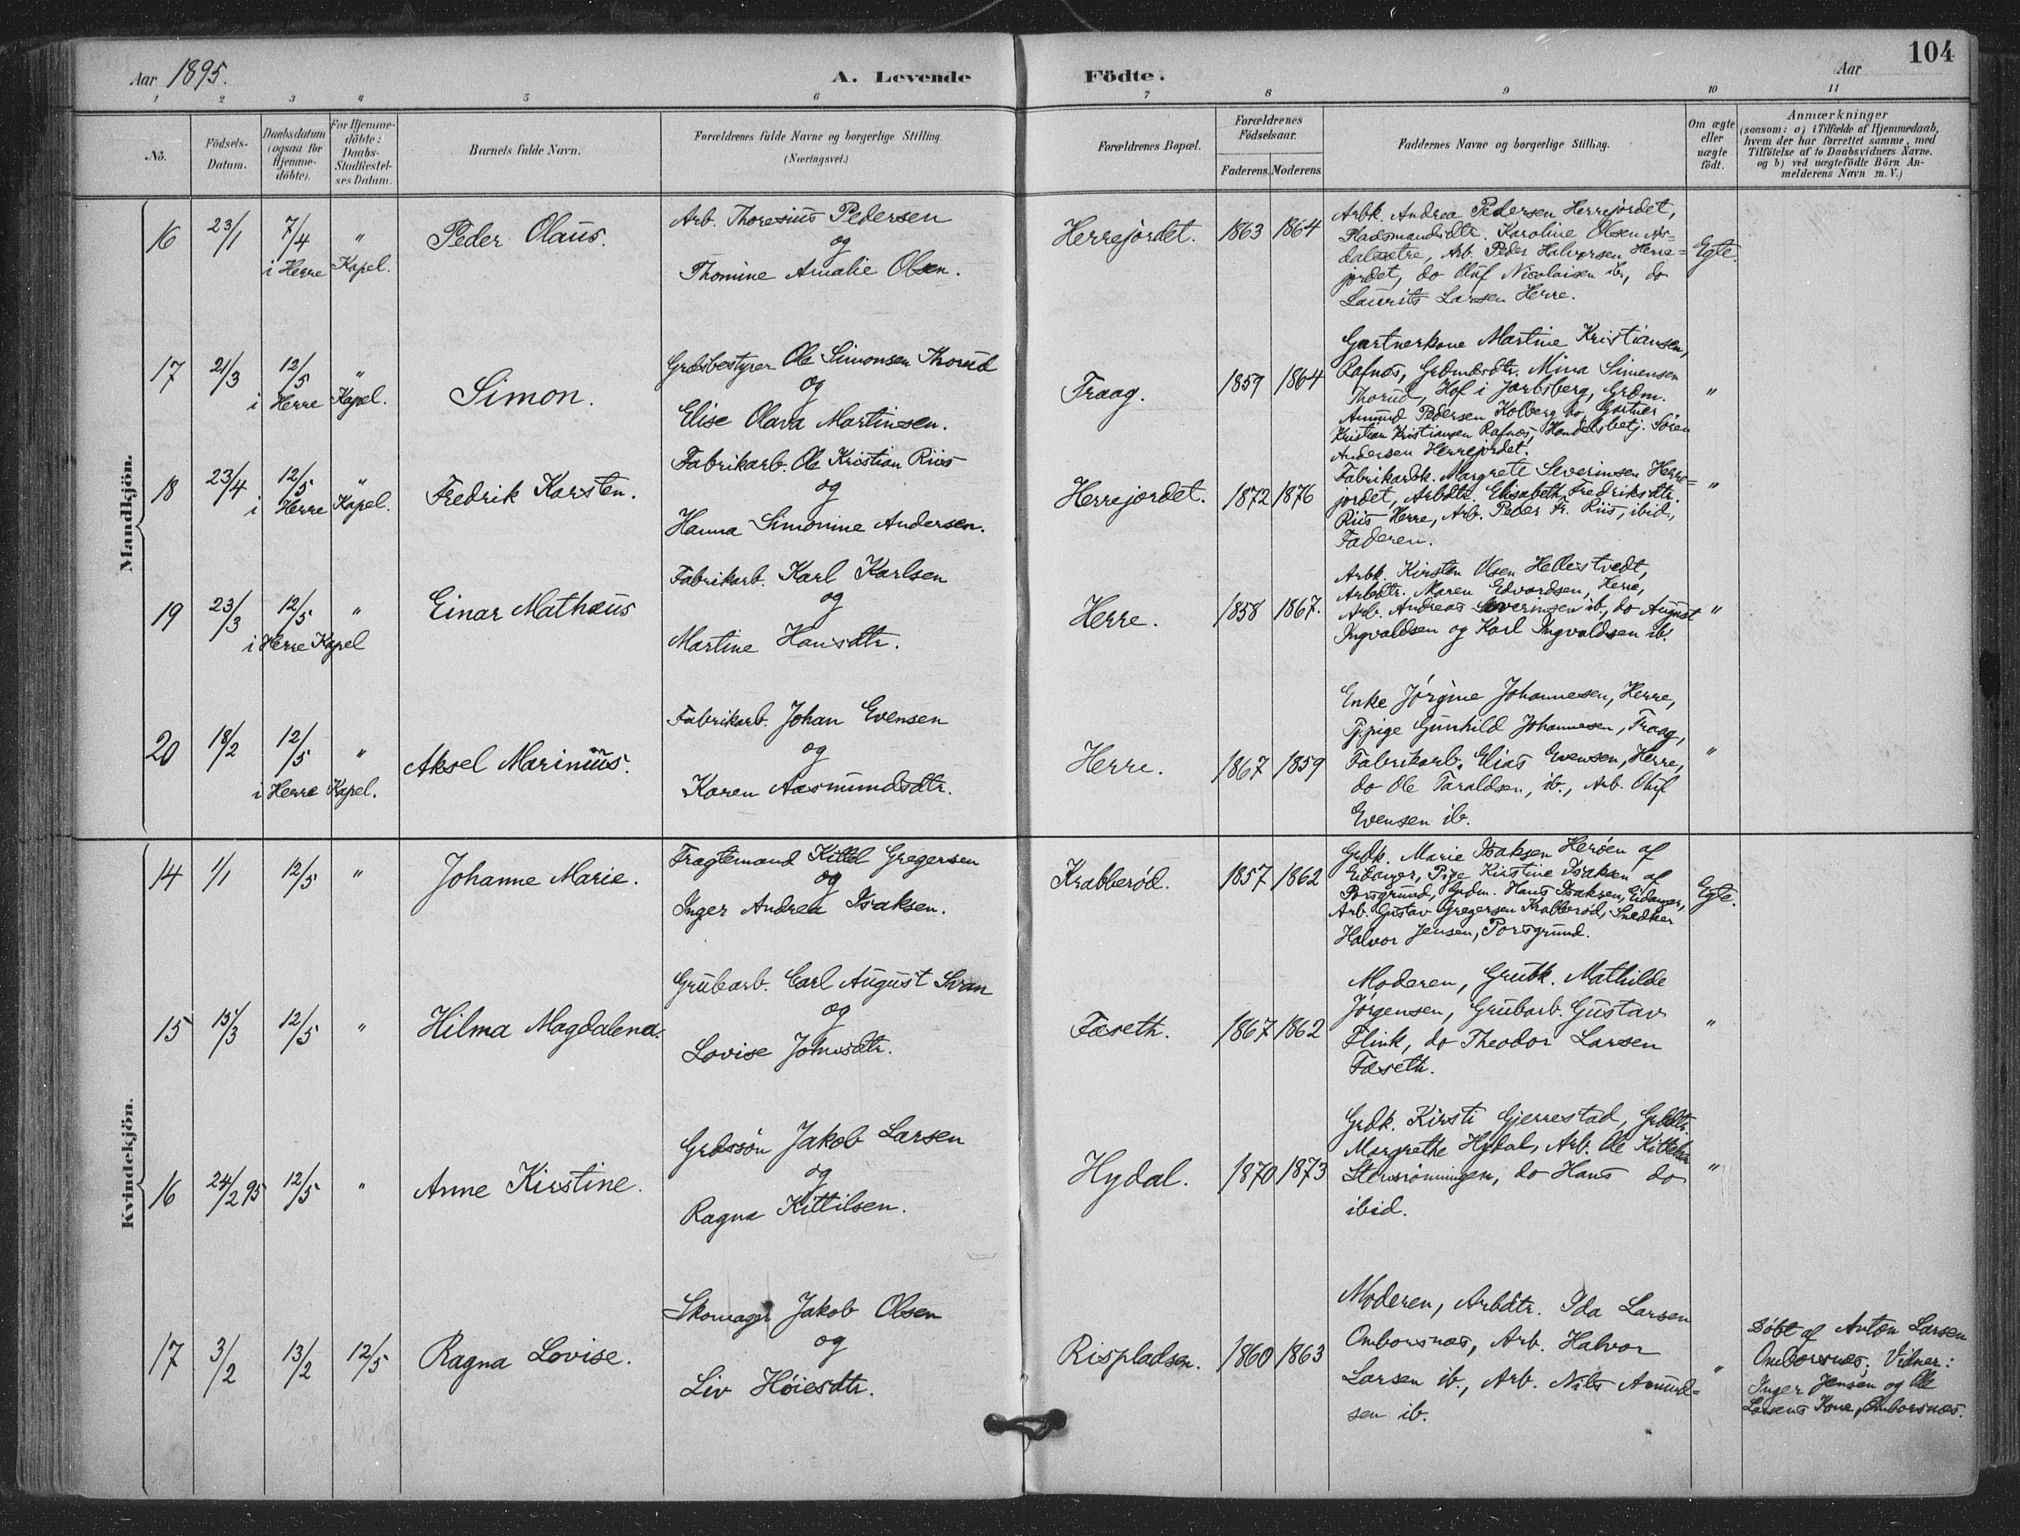 Aar 1895.
A. Levende Födte.
Aar
104
1 2 3 " 5 6 7 8 9 10 11
No.
Födsels-
Datum.
Daabsdatum
(ogsaa for
Hjemme-
döbte).
For Hjemme-
döbte:
Daabs-
Stadfæstel-
ses Datum.
Barnets fulde Navn.
Forældrenes fulde Navne og borgerlige Stilling.
(Næringsvei.)
Forældrenes Bopæl.
Forældrenes
Födselsaar.
Faderens. Moderens.
Faddernes Navne og borgerlige Stilling.
Om ægte
eller
uægte
födt.
Anmærkninger
(saasom: a) i Tilfælde af Hjemmedaab,
hvem der har forrettet samme, med
Tilföielse af to Daabsvidners Navne,
og b) ved uægtefödte Börn An-
melderens Navn m. V.)
Mandkjön.
16 23/1 7/4 "
i Herre Kapel.
Peder Olaus.
Arb. Thoresius Pedersen
og
Thomine Amalie Olsen.
Herrejordet. 1863 1864
Arbk. Andrea Pedersen Herrejordet,
Pladsmandsdtr. Karoline Olsen
Arb. Peder Halvorsen Herre=
jordet, do Oluf Nicolaisen ib, do
Laurits Larsen Herre.
Egte.
17 21/3 12/5 "
i Herre Kapel.
Simon.
Grdsbestyrer Ole Simonsen Thorud
og
Elise Olava Martinsen.
Fraag. 1859 1864
Gartnerkone Martine Kristiansen,
Rafnæs, Grdmdsdtr. Mina Simensen
Thorud, Hof i Jarlsberg, Grdm.
Amund Pedersen Kolberg do, Gartner
Kristian Kristiansen Rafnæs, Handelsbetj. Søren
Andersen Herrejordet.
"
18 23/4 12/5 "
i Herre Kapel.
Fredrik Karsten.
Fabrikarb. Ole Kristian Riis
og
Hanna Simonine Andersen.
Herrejordet. 1872 1876
Fabrikarbk. Margrete Severinsen Herre=
jordet, Arbdtr. Elisabeth Fredriksdtr.
Riis Herre, Arb. Peder Fr. Riis, ibid,
Faderen.
"
19 23/3 12/5 "
i Herre Kapel
Einar Mathæus
Fabrikarb. Karl Karlsen
og
Martine Hansdtr.
Herre. 1858 1867.
Arbk. Kirsten Olsen Hellestvedt,
Arbdtr. Maren Edvardsen, Herre,
Arb. Andreas Severinsen ib., do August
Ingvaldsen og Karl Ingvaldsen ib.
"
20 18/2 12/5 "
i Herre Kapel.
Aksel Marinius.
Fabrikarb. Johan Evensen
og
Karen Aasmundsdtr.
Herre. 1867 1859
Enke Jørgine Johannesen, Herre,
Tjpige Gunhild Johannesen, Fraag,
Fabrikarb. Elias Evensen, Herre,
do Ole Taraldsen, ib., Arb. Oluf
Evensen ib.
"
Kvindekjön.
14 1/1 12/5 "
Johanne Marie.
Fragtemand Kittel Gregersen
og
Inger Andrea Isaksen.
Krabberød. 1857 1862
Grdk. Marie Isaksen Herøen af
Eidanger, Pige Kirstine Isaksen af
Porsgrund, Grdm. Hans Isaksen, Eidanger,
Arb. Gustav Gregersen Krabberød, Snedker
Halvor Jensen, Porsgrund.
Egte.
15 15/3 12/5 "
Hilma Magdalena.
Grubarb. Carl August Svan
og
Lovise Jonasdtr.
Fæseth. 1867 1862
Moderen, Grubk. Mathilde
Jørgensen, Grubarb. Gustav
Flink, do Theodor Larsen
Fæseth.
"
16 24/2 95 12/5 "
Anne Kirstine.
Grdssøn Jakob Larsen
og
Ragna Kittilsen.
Hydal. 1870 1873
Grdk. Kirsti Gjerrestad, Grddtr.
Margrethe Hydal, Arb. Ole Kittelsen
do Hans do
ibid.
"
17 3/2 13/2 12/5
Ragna Lovise.
Skomager Jakob Olsen
og
Liv Høiesdtr.
Rispladsen. 1860 1863
Moderen, Arbdtr. Ida Larsen
Omborsnæs, Arb. Halvor
Larsen ib., Arb. Nils Amund=
sen ib.
"
Døbt af Anton Larsen
Omborsnæs; Vidner:
Inger Jensen og Ole
Larsens Kone, Omborsnæs.